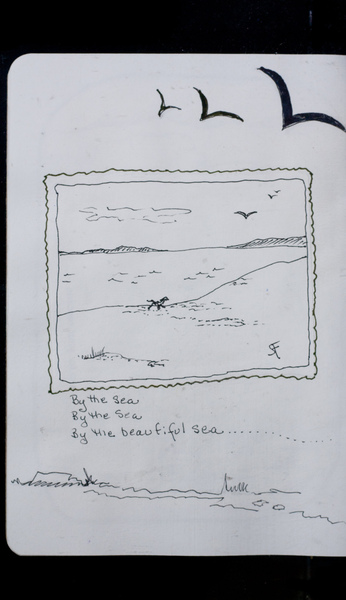 By the Sea
By the Sea
By the beautiful sea..............